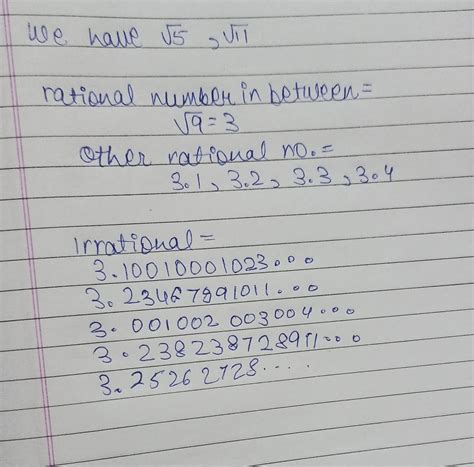 We have √5 , √11
rational number in between=
√9=3
Other rational no.=
3.1, 3.2, 3.3, 3.4
Irrational=
3.10010001023...
3.23467891011...
3.001002003004...
3.238238728911...
3.25262728....